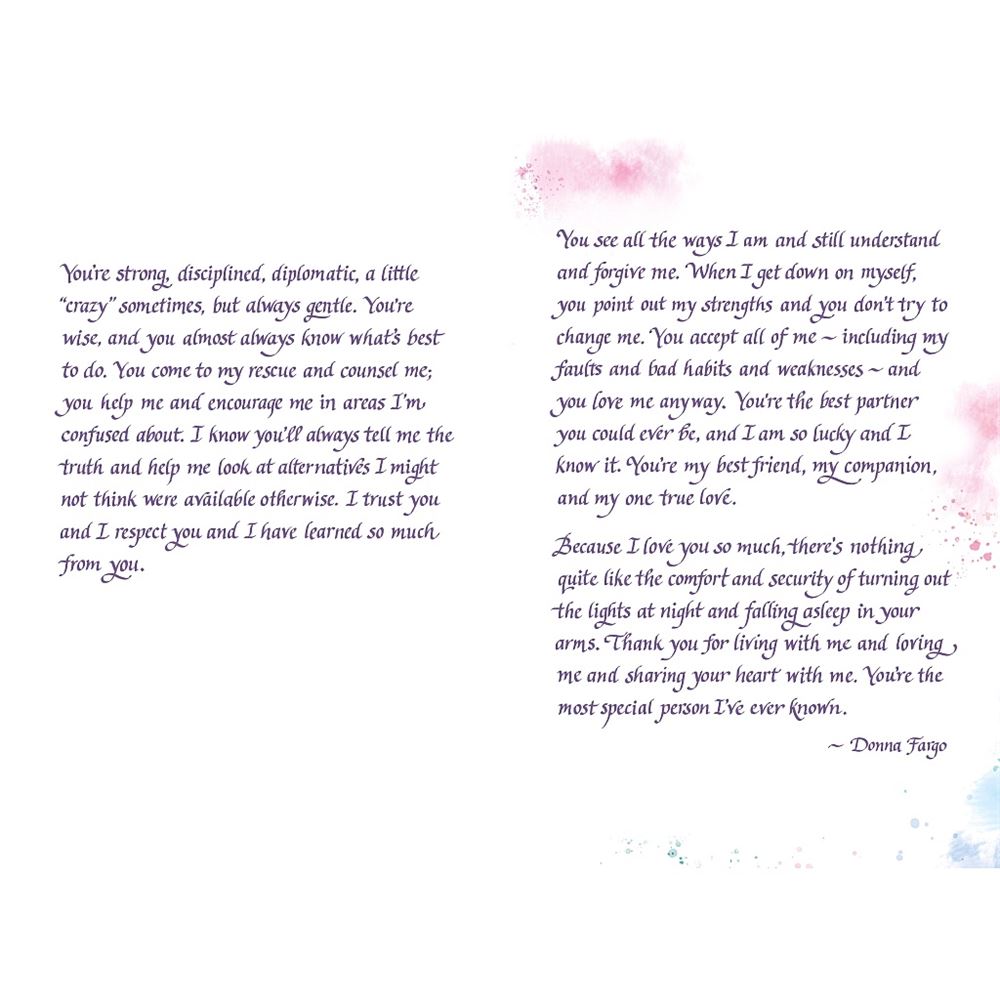 You're strong, disciplined, diplomatic, a little
"crazy" sometimes, but always gentle. You're
wise, and you almost always know what's best
to do. You come to my rescue and counsel me;
you help me and encourage me in areas I'm
confused about. I know you'll always tell me the
truth and help me look at alternatives I might
not think were available otherwise. I trust you
and I respect you and I have learned so much
from you.
You see all the ways I am and still understand
and forgive me. When I get down on myself,
you point out my strengths and you don't try to
change me. You accept all of me ~ including my
faults and bad habits and weaknesses ~ and
you love me anyway. You're the best partner
you could ever be, and I am so lucky and I
know it. You're my best friend, my companion,
and my one true love.
Because I love you so much, there's nothing
quite like the comfort and security of turning out
the lights at night and falling asleep in your
arms. Thank you for living with me and loving
me and sharing your heart with me. You're the
most special person I've ever known.
~ Donna Fargo